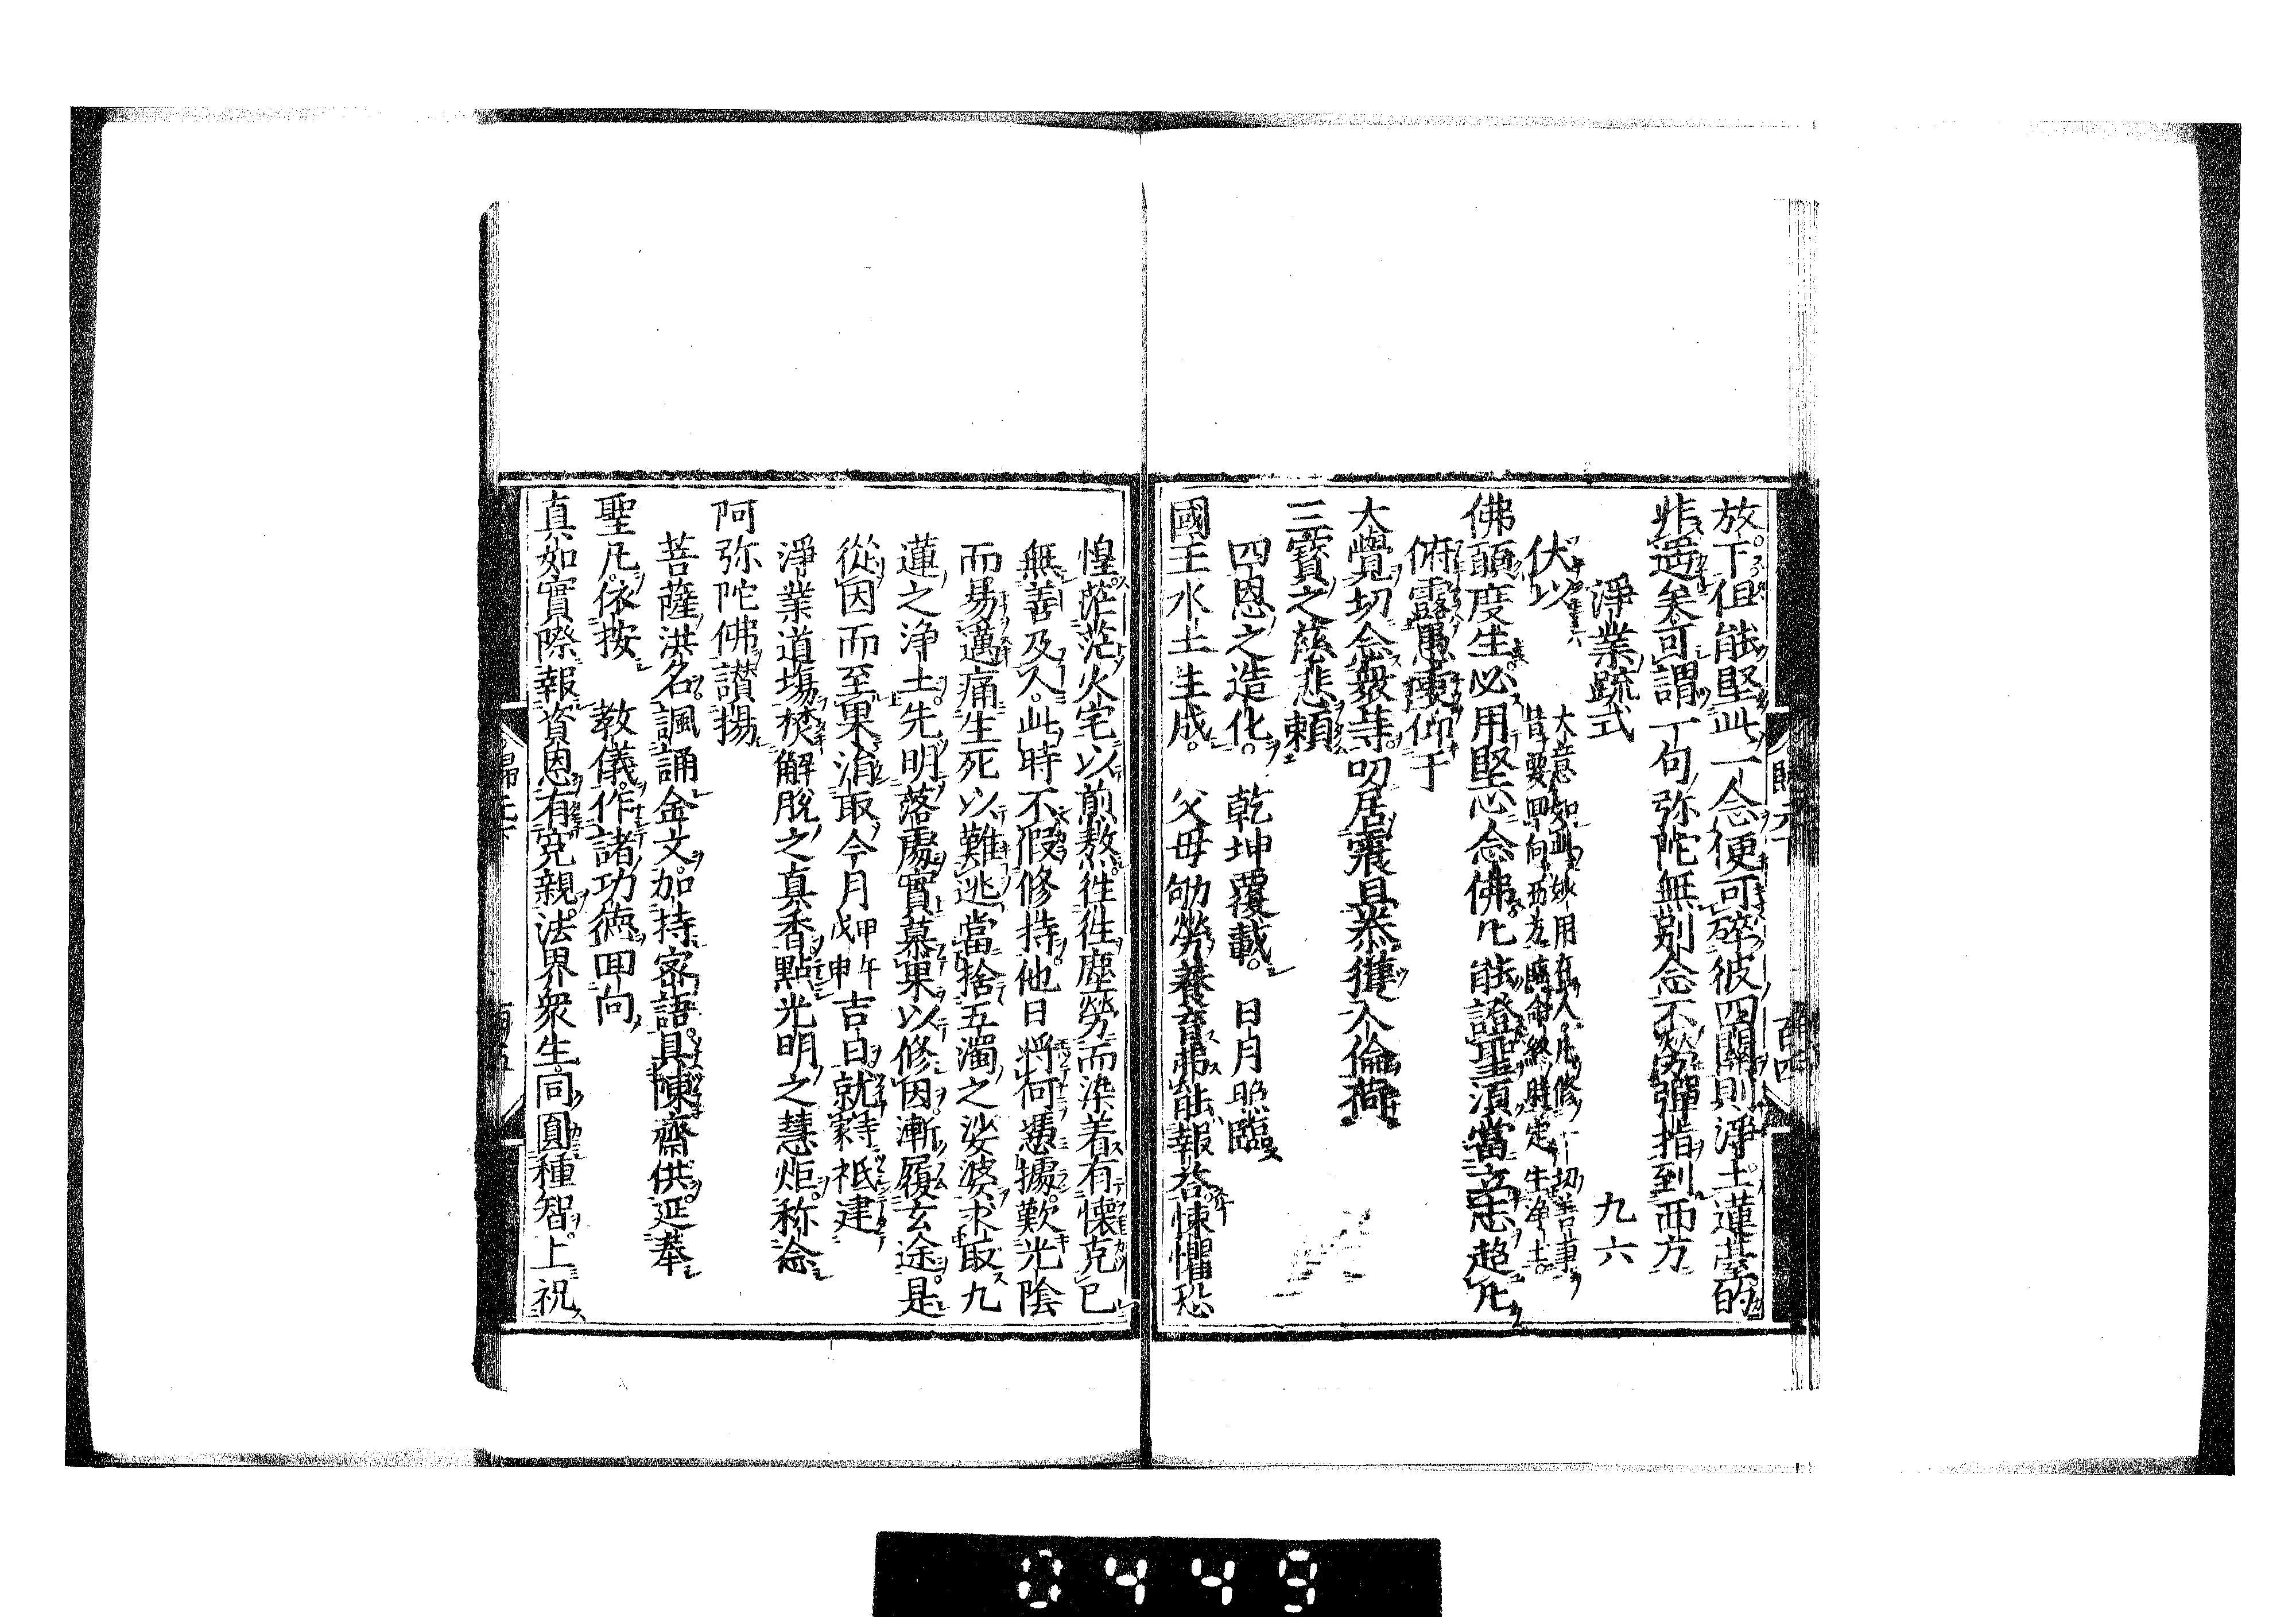 放下但能堅此一念便可碎彼四關則淨土蓮臺的
非遥矣可謂一句弥陀無别念不勞彈指到西方
淨業䟽式　九六
伏以
大意如此妙用在人凢修一切善事
皆要囬向西方臨命終時定生淨土
佛願度生必用堅心念佛凢能證聖須當立志超凢
俯露愚虔仰干
大覺切念衆等叨居震旦忝獲人倫荷
三寳之慈悲頼
四恩之造化　乾坤覆載　日月照臨
國王水土生成　父母劬勞養育弗能報荅悚懼恐
惶茫茫火宅以煎熬徃徃塵勞而染着有懷克已
無善及人此時不假修持他日将何憑據歎光陰
而易邁痛生死以難逃當捨五濁之娑婆求取九
蓮之浄土先明落處實慕果以修因漸履玄途是
從因而至果涓取今月甲午戊申吉日就寺祇建
淨業道塲焚解脱之真香點光明之慧炬称念
阿弥陀佛讃揚
菩薩洪名諷誦金文加持宻語具陳齋供延奉
聖凢依按　教儀作諸功徳囬向
真如實際報資恩有寃親法界衆生同圓種智上祝
歸元下
0449